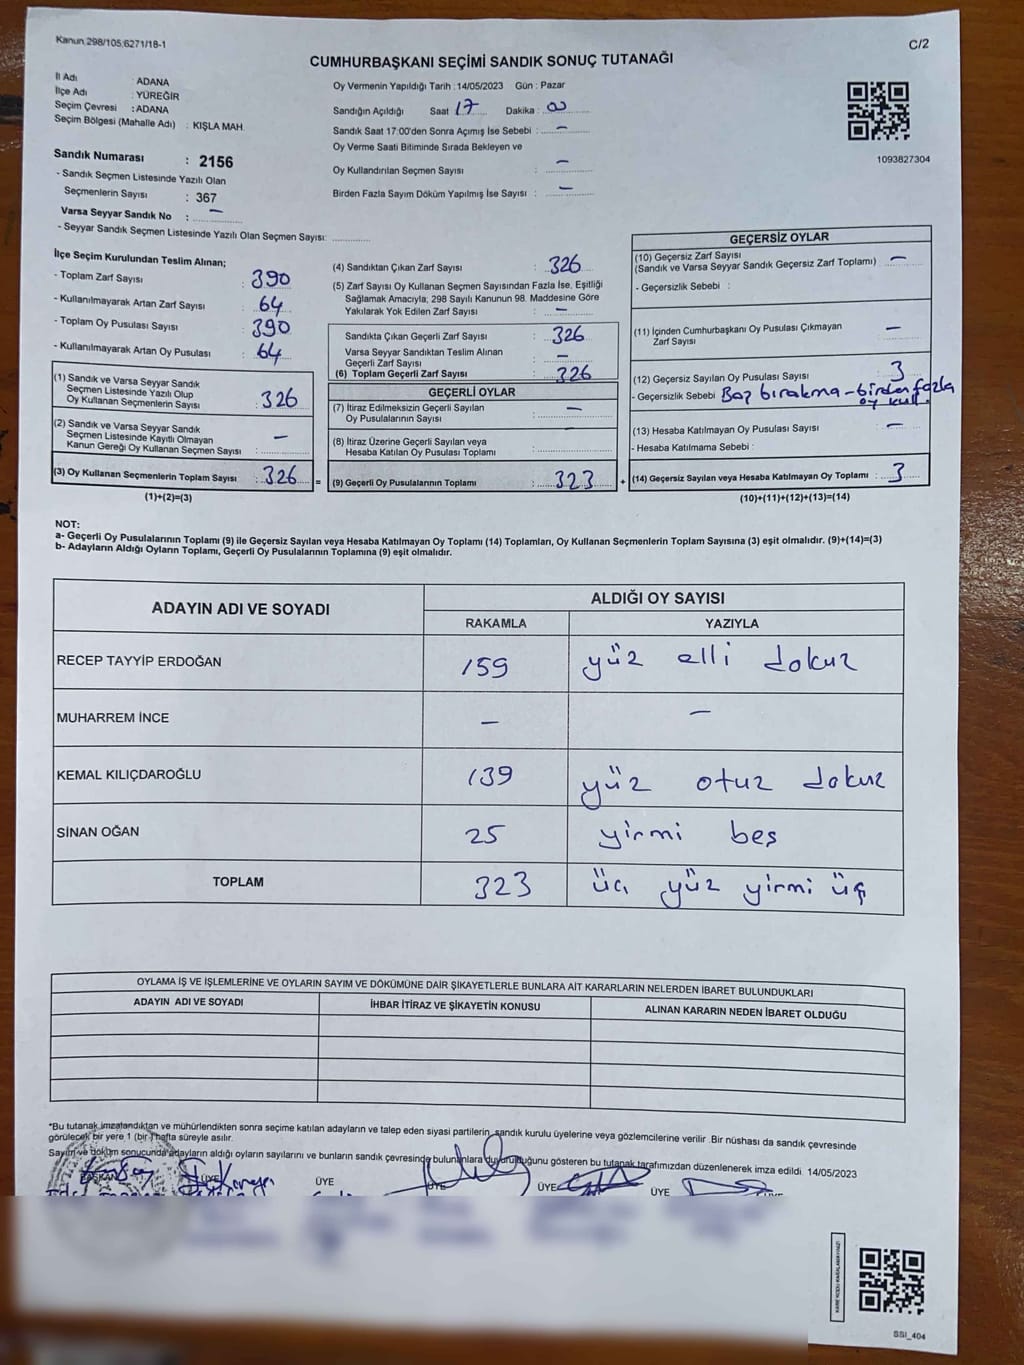 Kanun,298/105;6271/18-1
C/2
CUMHURBAŞKANI SEÇİMİ SANDIK SONUÇ TUTANAĞI
İl Adı : ADANA
İlçe Adı : YÜREĞİR
Seçim Çevresi : ADANA
Seçim Bölgesi (Mahalle Adı) : KIŞLA MAH.
Sandık Numarası : 2156
- Sandık Seçmen Listesinde Yazılı Olan
Seçmenlerin Sayısı : 367
Varsa Seyyar Sandık No : —
- Seyyar Sandık Seçmen Listesinde Yazılı Olan Seçmen Sayısı: ............
Oy Vermenin Yapıldığı Tarih :14/05/2023 Gün : Pazar
Sandığın Açıldığı Saat 17 Dakika : 00
Sandık Saat 17:00'den Sonra Açımış İse Sebebi : —
Oy Verme Saati Bitiminde Sırada Bekleyen ve
Oy Kullandırılan Seçmen Sayısı : —
Birden Fazla Sayım Döküm Yapılmış İse Sayısı : —
1093827304
İlçe Seçim Kurulundan Teslim Alınan;
- Toplam Zarf Sayısı : 390
- Kullanılmayarak Artan Zarf Sayısı : 64
- Toplam Oy Pusulası Sayısı : 390
- Kullanılmayarak Artan Oy Pusulası : 64
(1) Sandık ve Varsa Seyyar Sandık
Seçmen Listesinde Yazılı Olup
Oy Kullanan Seçmenlerin Sayısı : 326
(2) Sandık ve Varsa Seyyar Sandık
Seçmen Listesinde Kayıtlı Olmayan
Kanun Gereği Oy Kullanan Seçmen Sayısı : —
(3) Oy Kullanan Seçmenlerin Toplam Sayısı : 326 =
(1)+(2)=(3)
(4) Sandıktan Çıkan Zarf Sayısı : 326
(5) Zarf Sayısı Oy Kullanan Seçmen Sayısından Fazla İse, Eşitliği
Sağlamak Amacıyla; 298 Sayılı Kanunun 98. Maddesine Göre
Yakılarak Yok Edilen Zarf Sayısı : —
Sandıkta Çıkan Geçerli Zarf Sayısı : 326
Varsa Seyyar Sandıktan Teslim Alınan
Geçerli Zarf Sayısı : —
(6) Toplam Geçerli Zarf Sayısı : 326
GEÇERLİ OYLAR
(7) İtiraz Edilmeksizin Geçerli Sayılan
Oy Pusulalarının Sayısı : —
(8) İtiraz Üzerine Geçerli Sayılan veya
Hesaba Katılan Oy Pusulası Toplamı :
(9) Geçerli Oy Pusulalarının Toplamı : 323 +
GEÇERSİZ OYLAR
(10) Geçersiz Zarf Sayısı
(Sandık ve Varsa Seyyar Sandık Geçersiz Zarf Toplamı) : —
- Geçersizlik Sebebi :
(11) İçinden Cumhurbaşkanı Oy Pusulası Çıkmayan
Zarf Sayısı : —
(12) Geçersiz Sayılan Oy Pusulası Sayısı : 3
- Geçersizlik Sebebi : Boş bırakma - birden fazla
oy kull.
(13) Hesaba Katılmayan Oy Pusulası Sayısı : —
- Hesaba Katılmama Sebebi :
(14) Geçersiz Sayılan veya Hesaba Katılmayan Oy Toplamı : 3
(10)+(11)+(12)+(13)=(14)
NOT:
a- Geçerli Oy Pusulalarının Toplamı (9) ile Geçersiz Sayılan veya Hesaba Katılmayan Oy Toplamı (14) Toplamları, Oy Kullanan Seçmenlerin Toplam Sayısına (3) eşit olmalıdır. (9)+(14)=(3)
b- Adayların Aldığı Oyların Toplamı, Geçerli Oy Pusulalarının Toplamına (9) eşit olmalıdır.
ADAYIN ADI VE SOYADI ALDIĞI OY SAYISI
RAKAMLA YAZIYLA
RECEP TAYYİP ERDOĞAN 159 yüz elli dokuz
MUHARREM İNCE — —
KEMAL KILIÇDAROĞLU 139 yüz otuz dokuz
SİNAN OĞAN 25 yirmi beş
TOPLAM 323 üç yüz yirmi üç
OYLAMA İŞ VE İŞLEMLERİNE VE OYLARIN SAYIM VE DÖKÜMÜNE DAİR ŞİKAYETLERLE BUNLARA AİT KARARLARIN NELERDEN İBARET BULUNDUKLARI
ADAYIN ADI VE SOYADI İHBAR İTİRAZ VE ŞİKAYETİN KONUSU ALINAN KARARIN NEDEN İBARET OLDUĞU
*Bu tutanak imzalandıktan ve mühürlendikten sonra seçime katılan adayların ve talep eden siyasi partilerin, sandık kurulu üyelerine veya gözlemcilerine verilir .Bir nüshası da sandık çevresinde
görülecek bir yere 1 (bir) hafta süreyle asılır.
Sayım ve döküm sonucunda adayların aldığı oyların sayılarını ve bunların sandık çevresinde bulunanlara duyurulduğunu gösteren bu tutanak tarafımızdan düzenlenerek imza edildi. 14/05/2023
BAŞKAN ÜYE ÜYE ÜYE ÜYE ÜYE ÜYE
SSI_404